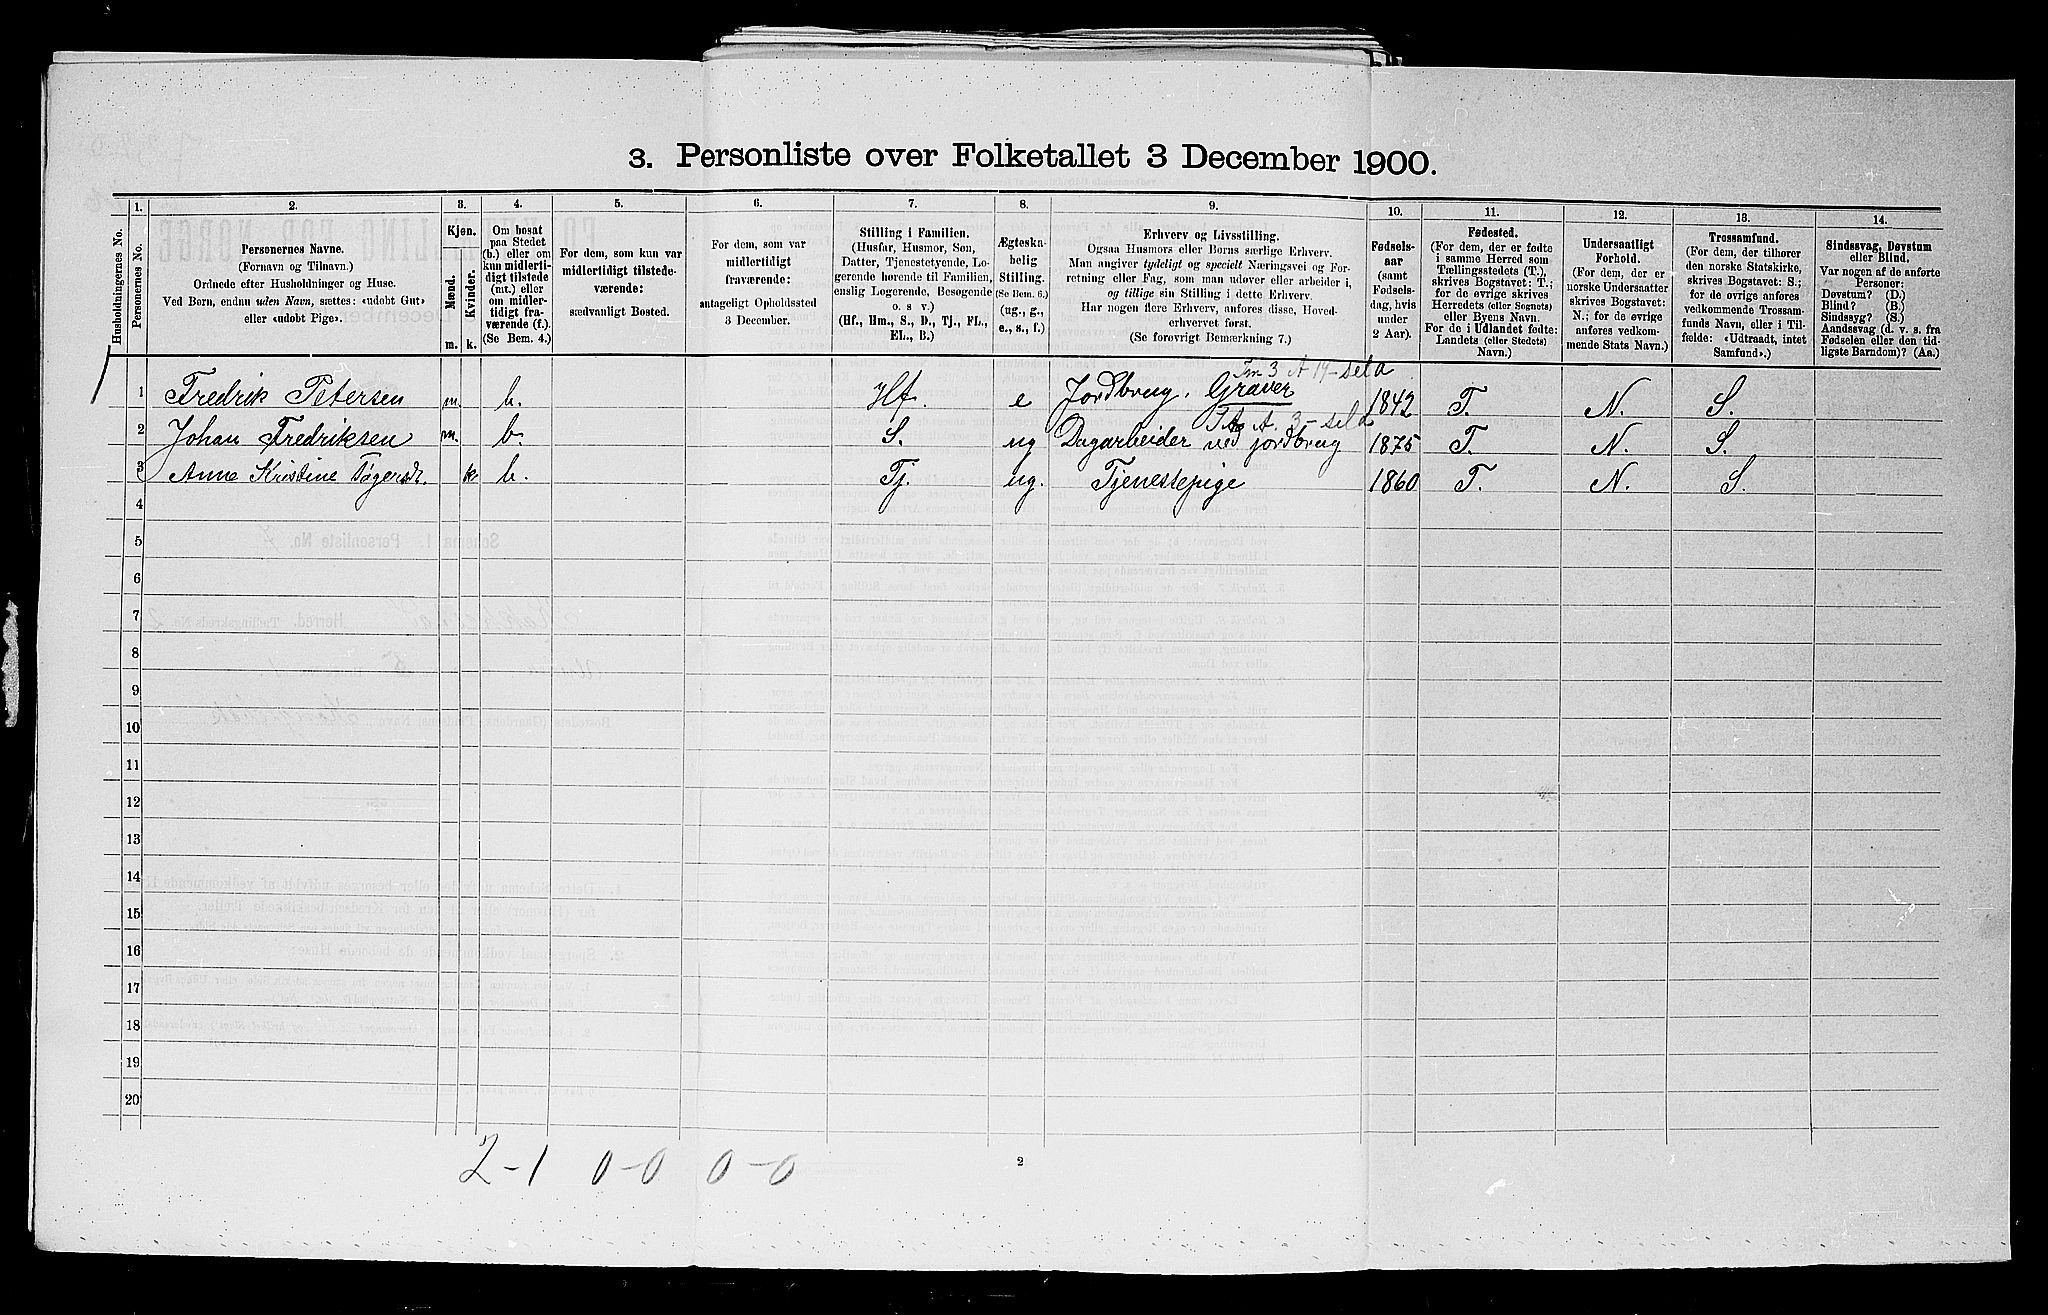 3. Personliste over Folketallet 3 December 1900.
1. 2. 3. 4. 5. 6. 7. 8. 9. 10. 11. 12. 13. 14.
Husholdningernes No.
Personernes No.
Personernes Navne.
(Fornavn og Tilnavn.)
Ordnede efter Husholdninger og Huse.
Ved Børn, endnu uden Navn, sættes: «udobt Gut»
eller «udobt Pige».
Kjøn.
Mænd.
Kvinder.
m. k.
Om bosat
paa Stedet
(b.) eller om
kun midlerti-
digt tilstede
(mt.) eller
om midler-
tidigt fra-
værende (f.).
(Se Bem. 4.)
For dem, som kun var
midlertidigt tilstede-
værende:
sædvanligt Bosted.
For dem, som var
midlertidigt
fraværende:
antageligt Opholdssted
3 December.
Stilling i Familien.
(Husfar, Husmor, Søn,
Datter, Tjenestetyende, Lo-
gerende hørende til Familien,
enslig Logerende, Besøgende
o. s. v.)
(Hf., Hm., S., D., Tj., FL.,
EL., B.)
Ægteska-
belig
Stilling.
(Se Bem. 6.)
(ug., g.,
e., s., f.)
Erhverv og Livsstilling.
Ogsaa Husmors eller Børns særlige Erhverv.
Man angiver tydeligt og specielt Næringsvei og For-
retning eller Fag, som man udøver eller arbeider i,
og tillige sin Stilling i dette Erhverv.
Har nogen flere Erhverv, anføres disse, Hoved-
erhvervet først.
(Se forøvrigt Bemærkning 7.)
Fødsels-
aar
(samt
Fødsels-
dag, hvis
under
2 Aar).
Fødested.
(For dem, der er fødte
i samme Herred som
Tællingsstedets (T.),
skrives Bogstavet: T.;
for de øvrige skrives
Herredets (eller Sognets)
eller Byens Navn.
For de i Udlandet fødte:
Landets (eller Stedets)
Navn.)
Undersaatligt
Forhold.
(For dem, der er
norske Undersaatter
skrives Bogstavet:
N.; for de øvrige
anføres vedkom-
mende Stats Navn.)
Trossamfund.
(For dem, der tilhører
den norske Statskirke,
skrives Bogstavet: S.;
for de øvrige anføres
vedkommende Trossam-
funds Navn, eller i Til-
fælde: «Udtraadt, intet
Samfund».)
Sindssvag, Døvstum
eller Blind.
Var nogen af de anførte
Personer:
Døvstum? (D.)
Blind? (B.)
Sindssyg? (S.)
Aandssvag (d. v. s. fra
Fødselen eller den tid-
ligste Barndom)? (Aa.)
3 A 14 - seld
1 Fredrik Petersen m. b. Hf. e Jordbrug. Graver 1842 T. N. S.
A. 3 - seld
2 Johan Fredriksen m. b. S. ug Dagarbeider ved jordbrug 1875 T. N. S.
3 Anne Kristine k b. Tj. ug. Tjenestepige 1860 T. N. S.
4
5
6
7
8
9
10
11
12
13
14
15
16
17
18
19
20
2-1 0-0 0-0
2